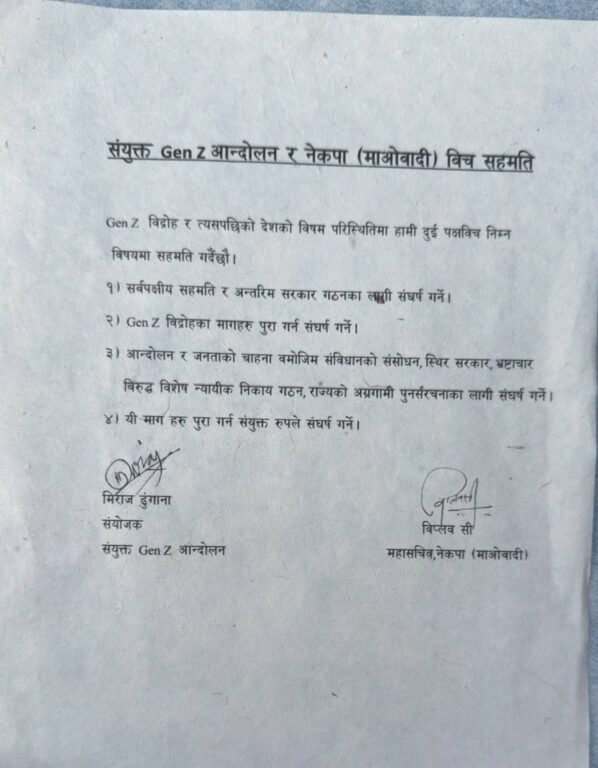 संयुक्त Gen Z आन्दोलन र नेकपा (माओवादी) विच सहमति
Gen Z विद्रोह र त्यसपछिको देशको विषम परिस्थितिमा हामी दुई पक्षविच निम्न
विषयमा सहमति गर्दैछौ।
१) सर्वपक्षीय सहमति र अन्तरिम सरकार गठनका लागी संघर्ष गर्ने।
२) Gen Z विद्रोहका मागहरु पुरा गर्न संघर्ष गर्ने।
३) आन्दोलन र जनताको चाहना वमोजिम संविधानको संसोधन, स्थिर सरकार, भ्रष्टाचार
विरुद्ध विशेष न्यायीक निकाय गठन, राज्यको अग्रगामी पुनर्संरचनाका लागी संघर्ष गर्ने।
४) यी माग हरु पुरा गर्न संयुक्त रुपले संघर्ष गर्ने।
मिराज ढुंगाना
संयोजक
संयुक्त Gen Z आन्दोलन
विप्लव सी
महासचिव, नेकपा (माओवादी)